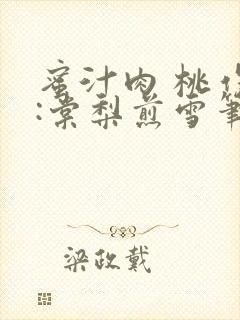 蜜汁肉桃作
:棠梨煎雪筆
梁政戴